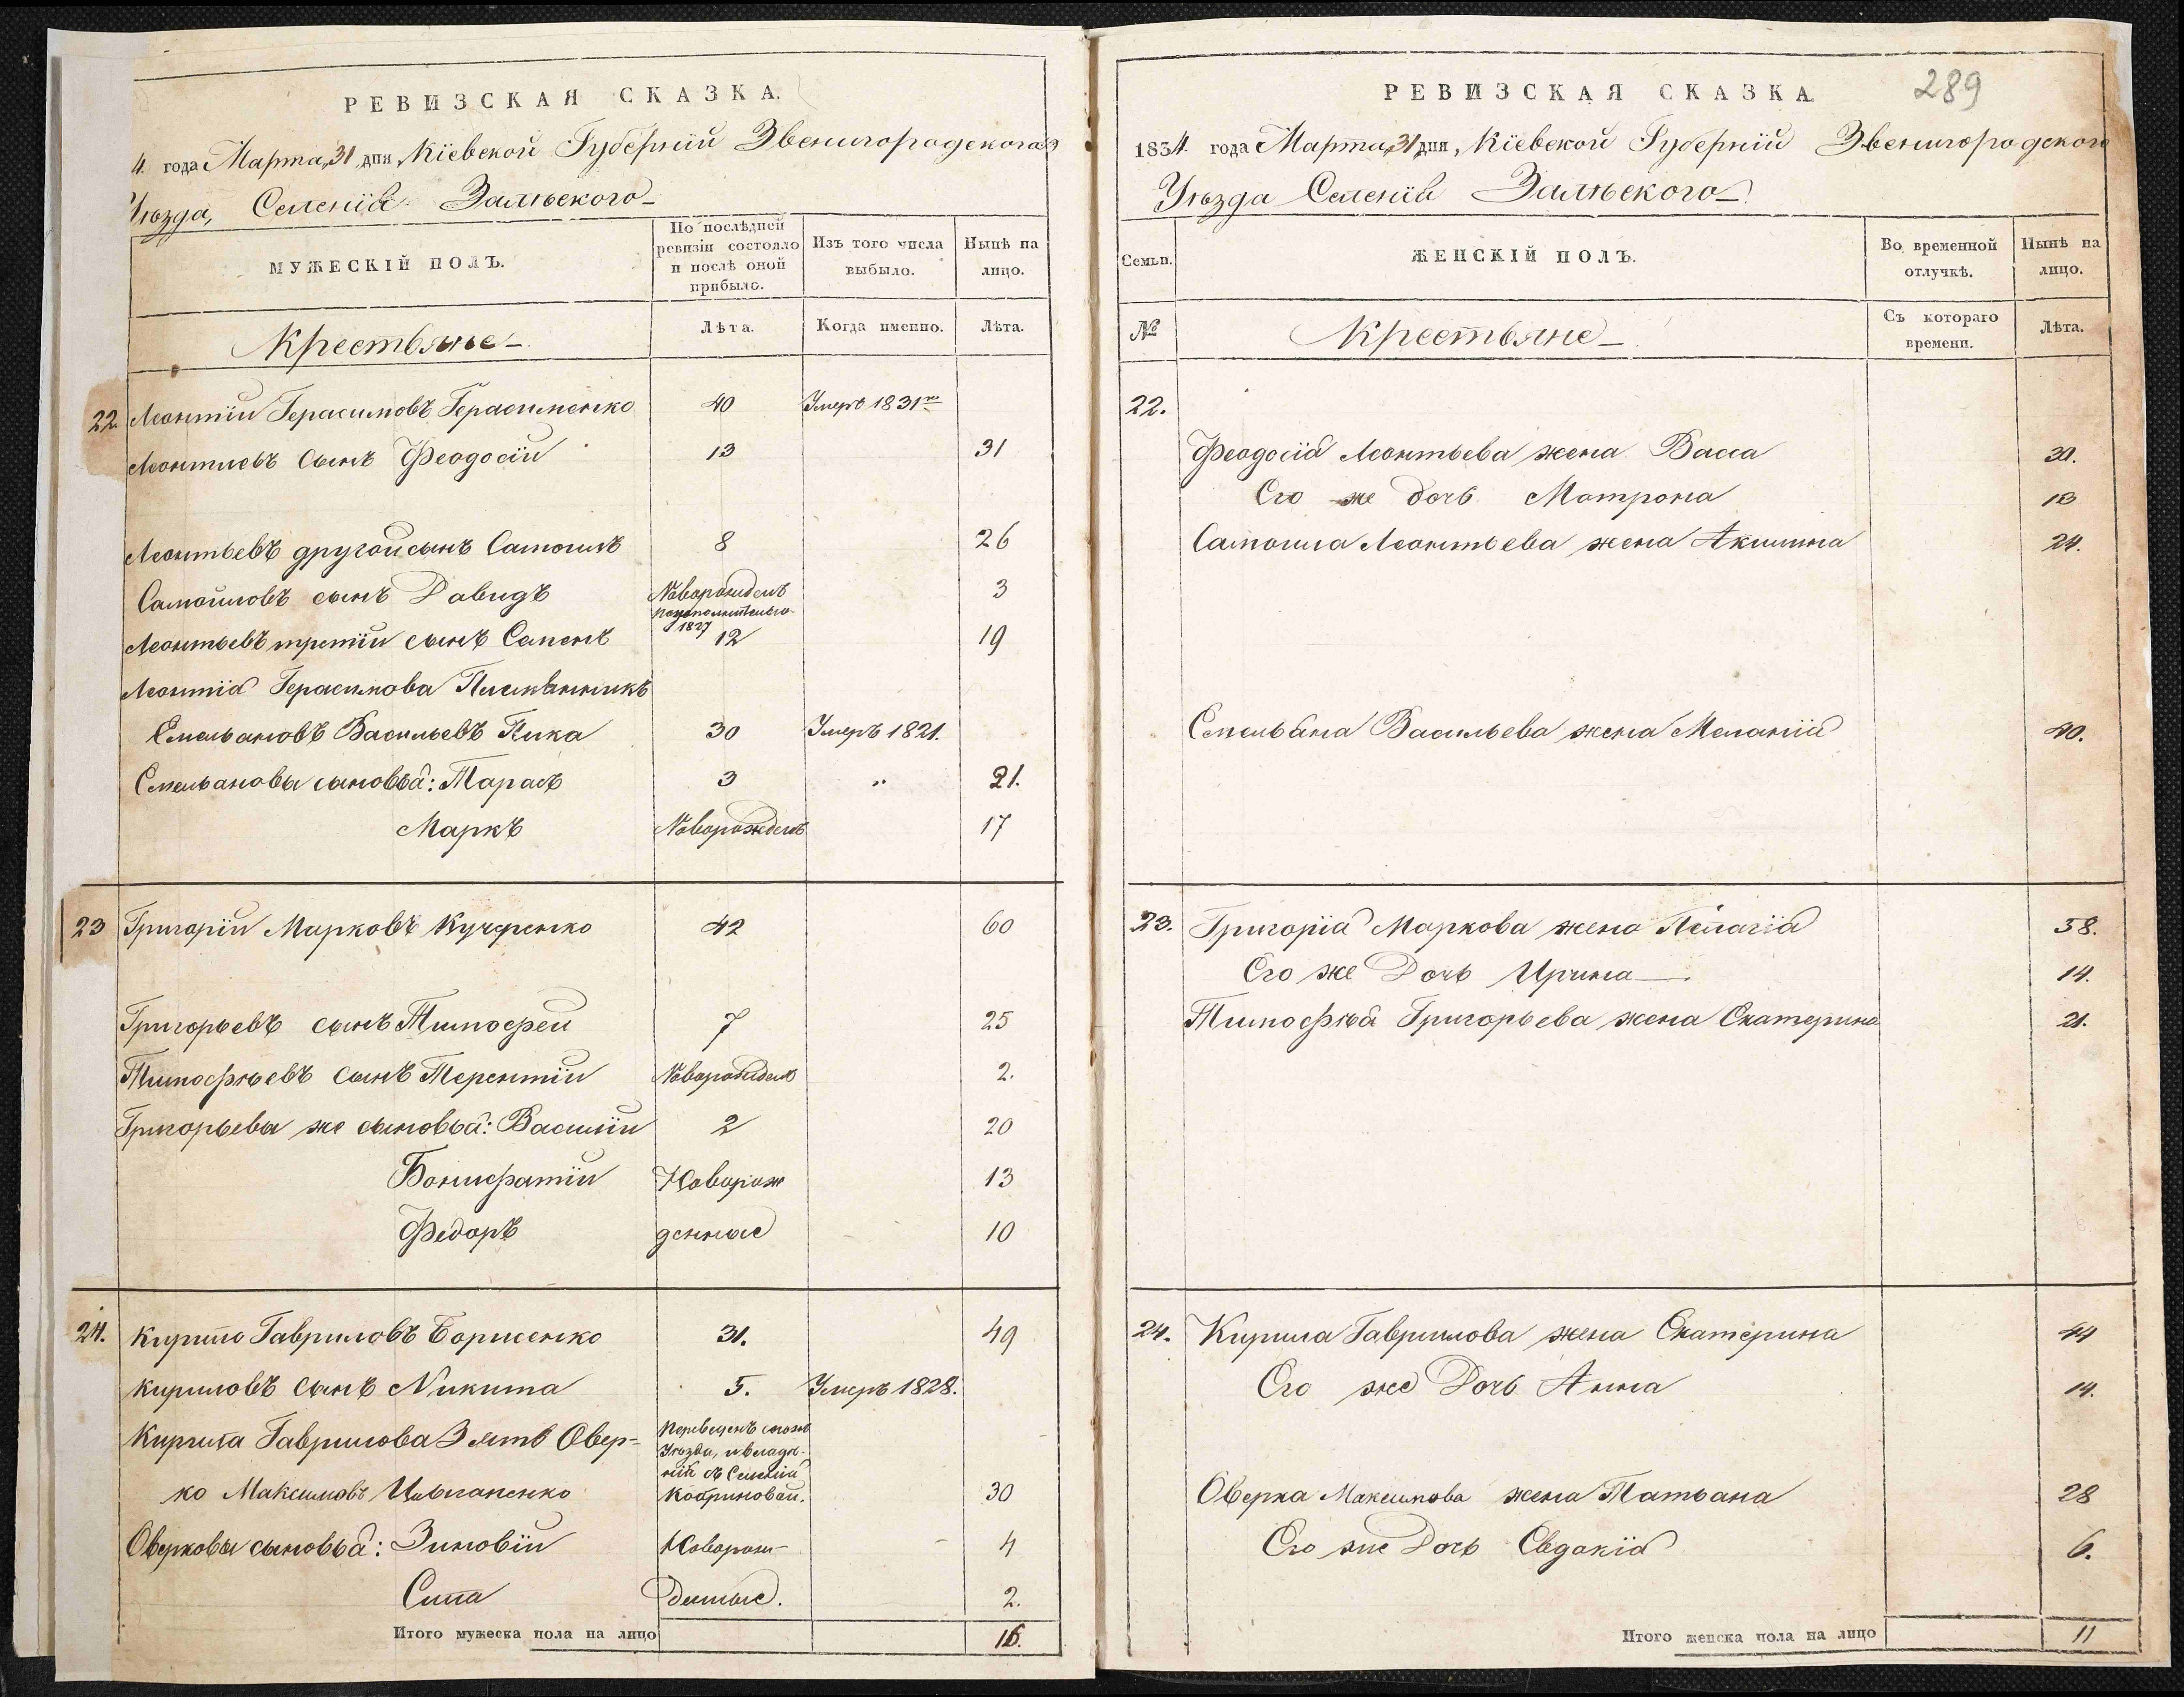 РЕВИЗСКАЯ СКАЗКА.
4. года Марта, 31 дня, Кіевской Губерніи Звенигородского
Уѣзда, Селенія Залѣского
МУЖЕСКІЙ ПОЛЪ.
По послѣдней ревизіи состояло и послѣ оной прибыло.
Изъ того числа выбыло.
Нынѣ на лицо.
Крестьяне
Лѣта.
Когда именно.
Лѣта.
22. Леонтій Герасимовъ Герасименко 40 Умеръ 1831го
Леонтьевъ Сынъ Феодосій 13 31
Леонтьевъ другой сынъ Самоилъ 8 26
Самойловъ сынъ Давидъ Новорожденъ 3
Леонтьевъ третій сынъ Семенъ 1827 12 19
Леонтія Герасимова Племянникъ
Емельяновъ Васильевъ Пика 30 Умеръ 1821.
Емельяновы сыновья: Тарасъ 3 " 21.
Маркъ Новорожденъ 17
23 Григорій Марковъ Кучеренко 42 60
Григорьевъ сынъ Тимофей 7 25
Тимофѣевъ сынъ Терентій Новорожденъ 2.
Григорьевы же сыновья: Василій 2 20
Бонифатій Новорож 13
Федоръ денные 10
24. Кирило Гавриловъ Борисенко 31. 49
Кириловъ сынъ Никита 5. Умеръ 1828.
Кирила Гаврилова Зять Овер-
Переведенъ
Уѣзда, и владѣ-
нія съ Селенія
ко Максимовъ Цыганенко Кобриновой. 30
Оверковы сыновья: Зиновій Новорож- 4
Сила денные. 2.
Итого мужеска пола на лицо 16.
289
РЕВИЗСКАЯ СКАЗКА.
1834. года Марта, 31 дня, Кіевской Губерніи Звенигородского
Уѣзда Селенія Залѣского
Семьи.
ЖЕНСКІЙ ПОЛЪ.
Во временной отлучкѣ.
Нынѣ на лицо.
№
Крестьяне
Съ котораго времени.
Лѣта.
22.
Феодосія Леонтьева жена Васса 30.
Его же дочь Матрона 13
Самоила Леонтьева жена Акилина 24.
Емельяна Васильева жена Меланія 40.
23. Григорія Маркова жена Пелагія 58.
Его же Дочь Ирина 14.
Тимофѣя Григорьева жена Екатерина 21.
24. Кирила Гаврилова жена Екатерина 44
Его же Дочь Анна 14.
Оверка Максимова жена Татьяна 28
Его же Дочь Евдокія 6.
Итого женска пола на лицо 11